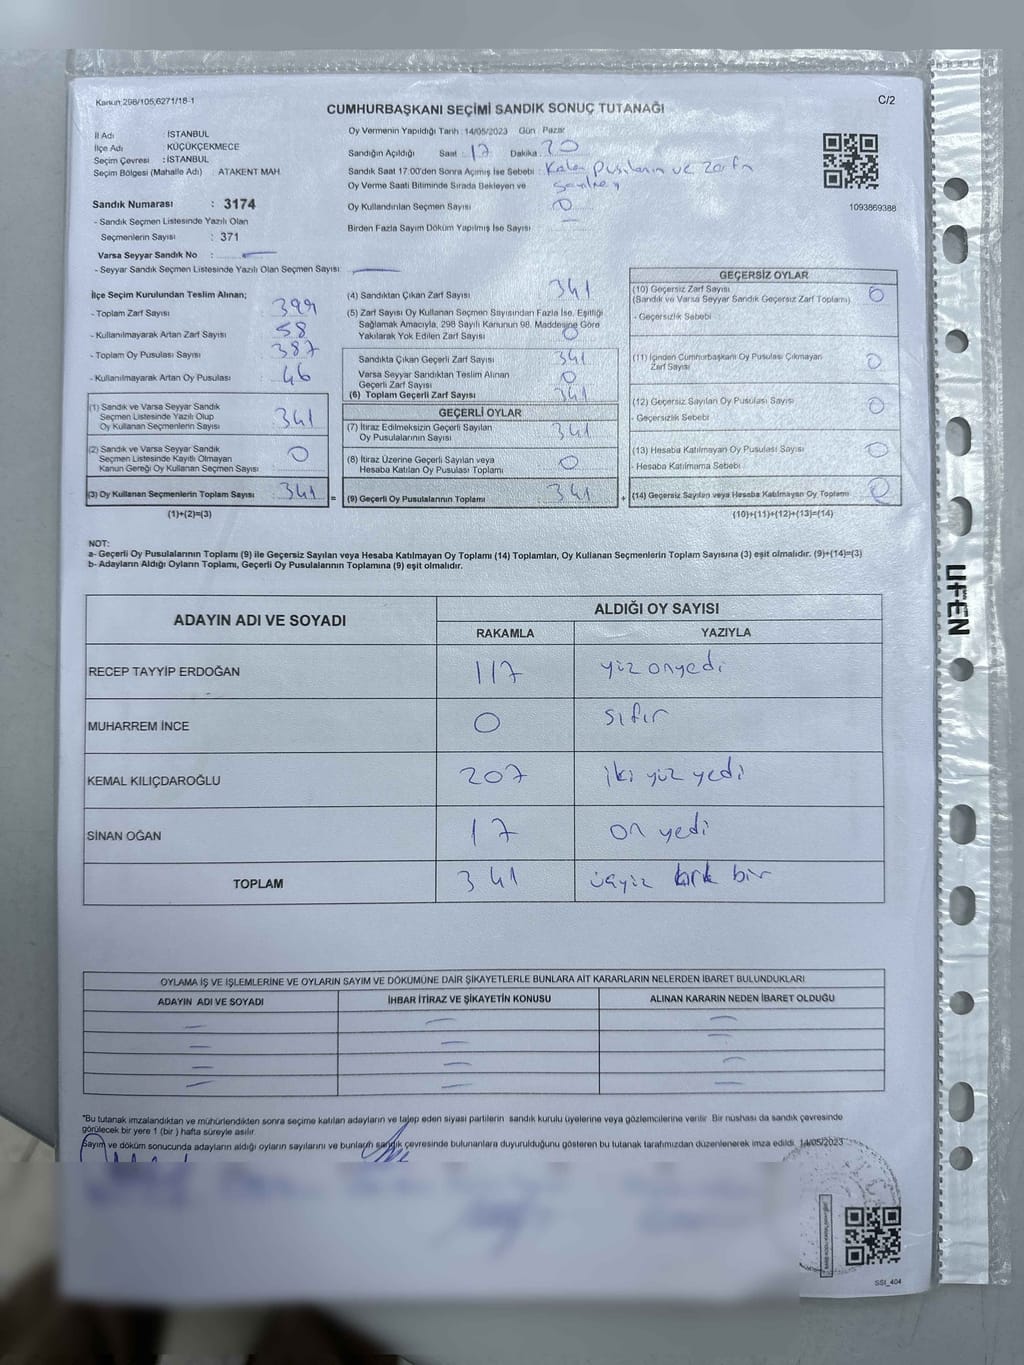 Kanun 298/105,6271/18-1
C/2
CUMHURBAŞKANI SEÇİMİ SANDIK SONUÇ TUTANAĞI
İl Adı : İSTANBUL
İlçe Adı : KÜÇÜKÇEKMECE
Seçim Çevresi : İSTANBUL
Seçim Bölgesi (Mahalle Adı) ATAKENT MAH.
Sandık Numarası : 3174
- Sandık Seçmen Listesinde Yazılı Olan
Seçmenlerin Sayısı : 371
Varsa Seyyar Sandık No :
- Seyyar Sandık Seçmen Listesinde Yazılı Olan Seçmen Sayısı:
Oy Vermenin Yapıldığı Tarih :14/05/2023 Gün Pazar
Sandığın Açıldığı Saat : 17 Dakika : 20
Sandık Saat 17.00'den Sonra Açımış İse Sebebi : Kalan pusulanın ve zarfın
Oy Verme Saati Bitiminde Sırada Bekleyen ve
Oy Kullandırılan Seçmen Sayısı : 0
Birden Fazla Sayım Döküm Yapılmış İse Sayısı : —
1093869388
İlçe Seçim Kurulundan Teslim Alınan;
- Toplam Zarf Sayısı : 399
- Kullanılmayarak Artan Zarf Sayısı : 58
- Toplam Oy Pusulası Sayısı : 387
- Kullanılmayarak Artan Oy Pusulası : 46
(1) Sandık ve Varsa Seyyar Sandık
Seçmen Listesinde Yazılı Olup
Oy Kullanan Seçmenlerin Sayısı : 341
(2) Sandık ve Varsa Seyyar Sandık
Seçmen Listesinde Kayıtlı Olmayan
Kanun Gereği Oy Kullanan Seçmen Sayısı : 0
(3) Oy Kullanan Seçmenlerin Toplam Sayısı : 341
(1)+(2)=(3)
=
(4) Sandıktan Çıkan Zarf Sayısı : 341
(5) Zarf Sayısı Oy Kullanan Seçmen Sayısından Fazla İse, Eşitliği
Sağlamak Amacıyla, 298 Sayılı Kanunun 98. Maddesine Göre
Yakılarak Yok Edilen Zarf Sayısı : 0
Sandıkta Çıkan Geçerli Zarf Sayısı : 341
Varsa Seyyar Sandıktan Teslim Alınan
Geçerli Zarf Sayısı : 0
(6) Toplam Geçerli Zarf Sayısı : 341
GEÇERLİ OYLAR
(7) İtiraz Edilmeksizin Geçerli Sayılan
Oy Pusulalarının Sayısı : 341
(8) İtiraz Üzerine Geçerli Sayılan veya
Hesaba Katılan Oy Pusulası Toplamı : 0
(9) Geçerli Oy Pusulalarının Toplamı : 341
+
GEÇERSİZ OYLAR
(10) Geçersiz Zarf Sayısı
(Sandık ve Varsa Seyyar Sandık Geçersiz Zarf Toplamı) : 0
- Geçersizlik Sebebi :
(11) İçinden Cumhurbaşkanı Oy Pusulası Çıkmayan
Zarf Sayısı : 0
(12) Geçersiz Sayılan Oy Pusulası Sayısı : 0
- Geçersizlik Sebebi :
(13) Hesaba Katılmayan Oy Pusulası Sayısı : 0
- Hesaba Katılmama Sebebi :
(14) Geçersiz Sayılan veya Hesaba Katılmayan Oy Toplamı :
(10)+(11)+(12)+(13)=(14)
NOT:
a- Geçerli Oy Pusulalarının Toplamı (9) ile Geçersiz Sayılan veya Hesaba Katılmayan Oy Toplamı (14) Toplamları, Oy Kullanan Seçmenlerin Toplam Sayısına (3) eşit olmalıdır. (9)+(14)=(3)
b- Adayların Aldığı Oyların Toplamı, Geçerli Oy Pusulalarının Toplamına (9) eşit olmalıdır.
ADAYIN ADI VE SOYADI ALDIĞI OY SAYISI
RAKAMLA YAZIYLA
RECEP TAYYİP ERDOĞAN 117 yüz onyedi
MUHARREM İNCE 0 sıfır
KEMAL KILIÇDAROĞLU 207 iki yüz yedi
SİNAN OĞAN 17 on yedi
TOPLAM 341 üçyüz kırk bir
OYLAMA İŞ VE İŞLEMLERİNE VE OYLARIN SAYIM VE DÖKÜMÜNE DAİR ŞİKAYETLERLE BUNLARA AİT KARARLARIN NELERDEN İBARET BULUNDUKLARI
ADAYIN ADI VE SOYADI İHBAR İTİRAZ VE ŞİKAYETİN KONUSU ALINAN KARARIN NEDEN İBARET OLDUĞU
— — —
— — —
— — —
— — —
*Bu tutanak imzalandıktan ve mühürlendikten sonra seçime katılan adayların ve talep eden siyasi partilerin sandık kurulu üyelerine veya gözlemcilerine verilir. Bir nüshası da sandık çevresinde
görülecek bir yere 1 (bir ) hafta süreyle asılır.
Sayım ve döküm sonucunda adayların aldığı oyların sayılarını ve bunların sandık çevresinde bulunanlara duyurulduğunu gösteren bu tutanak tarafımızdan düzenlenerek imza edildi. 14/05/2023
SSI_404
UFEN